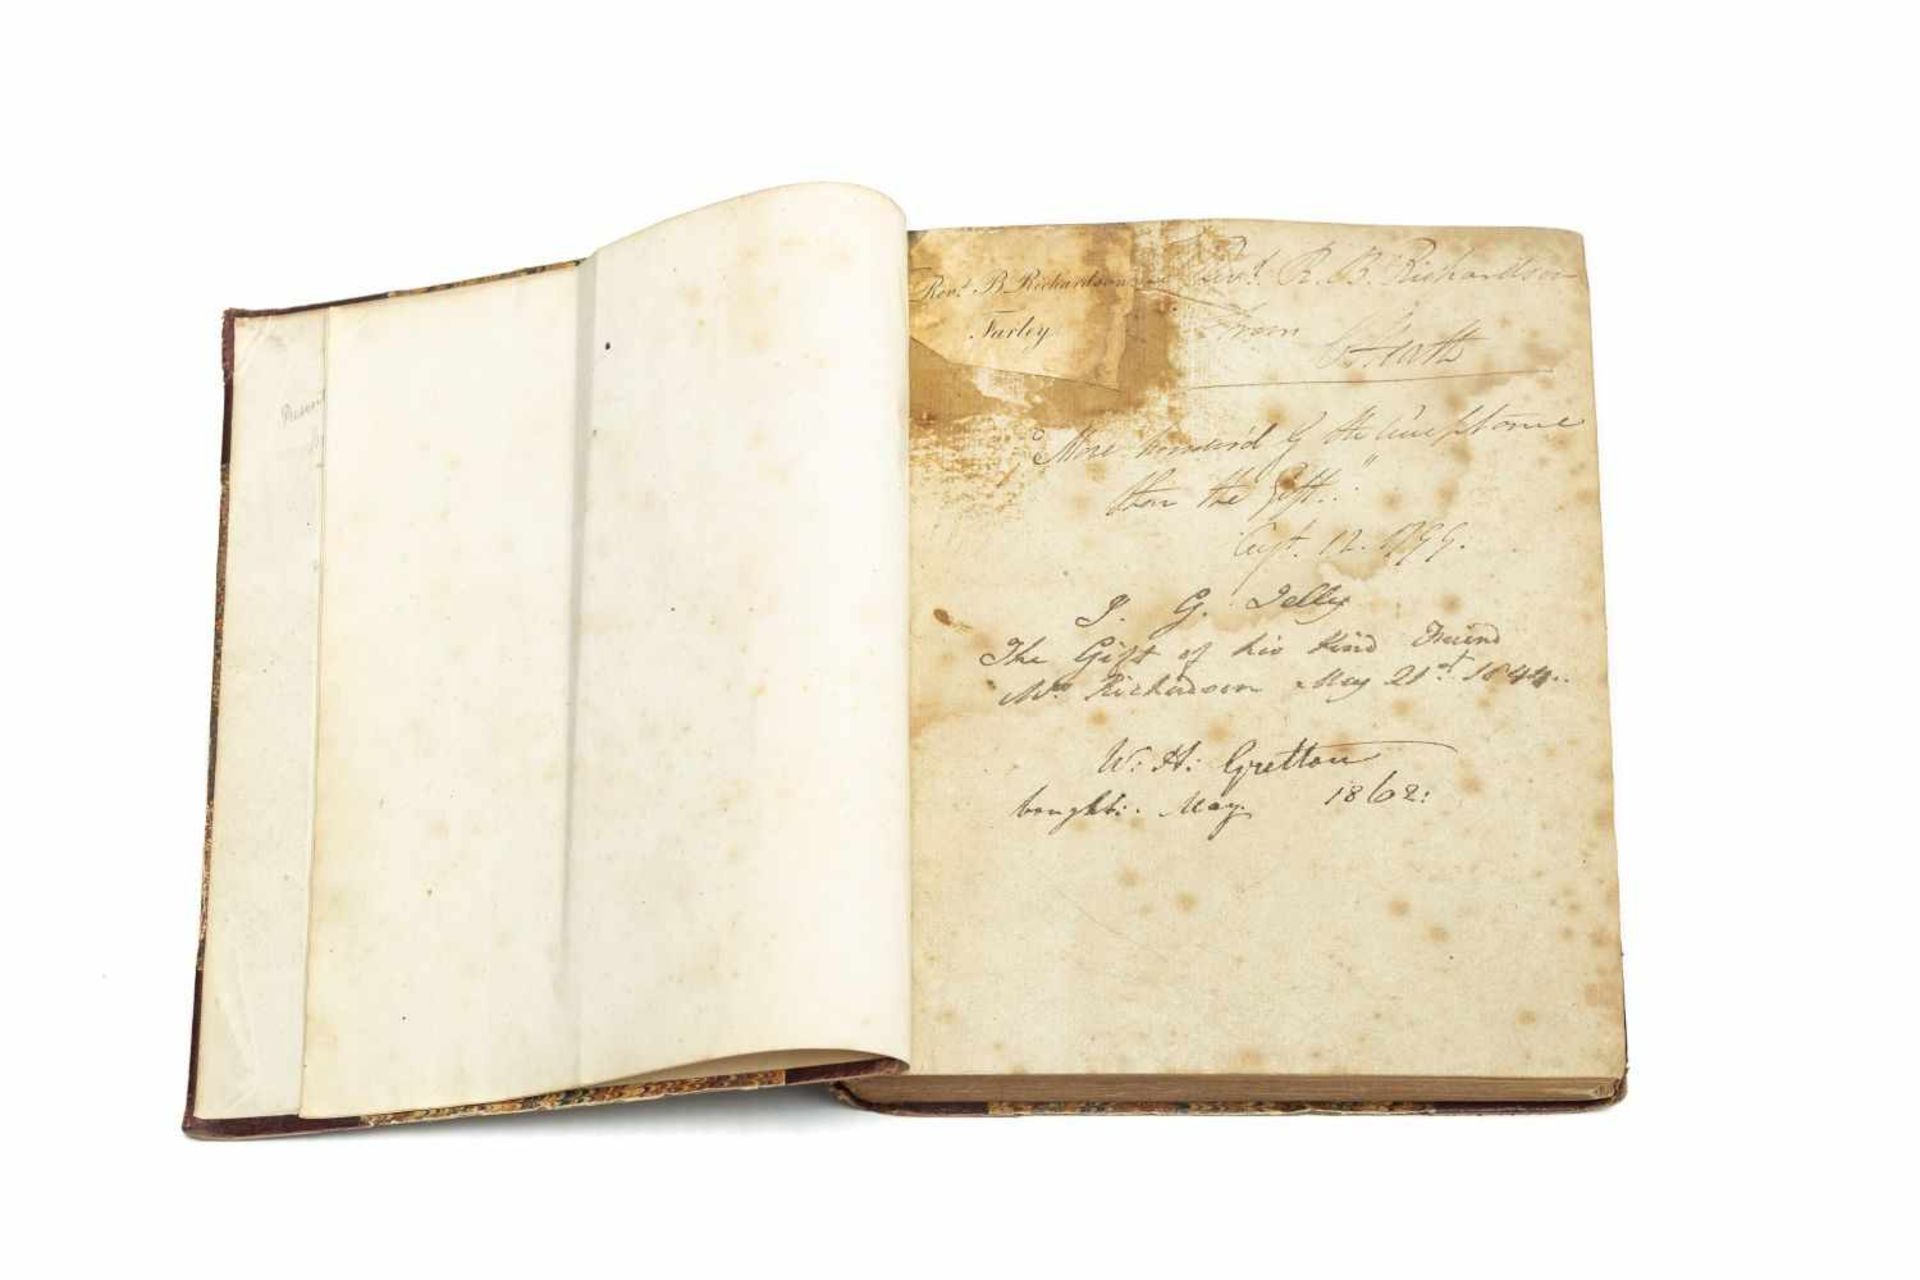 Present
Revd. B Richardson
Farley
Revd. R. B. Richardson
From
Heath
"More honour'd by the Acceptance
than the Gift.."
Augt. 12. 1799.
J. G. Jelly
The Gift of his Kind Friend
Mrs Richardson May 21st 1844..
W: H: Gretton
bought:. May. 1862: